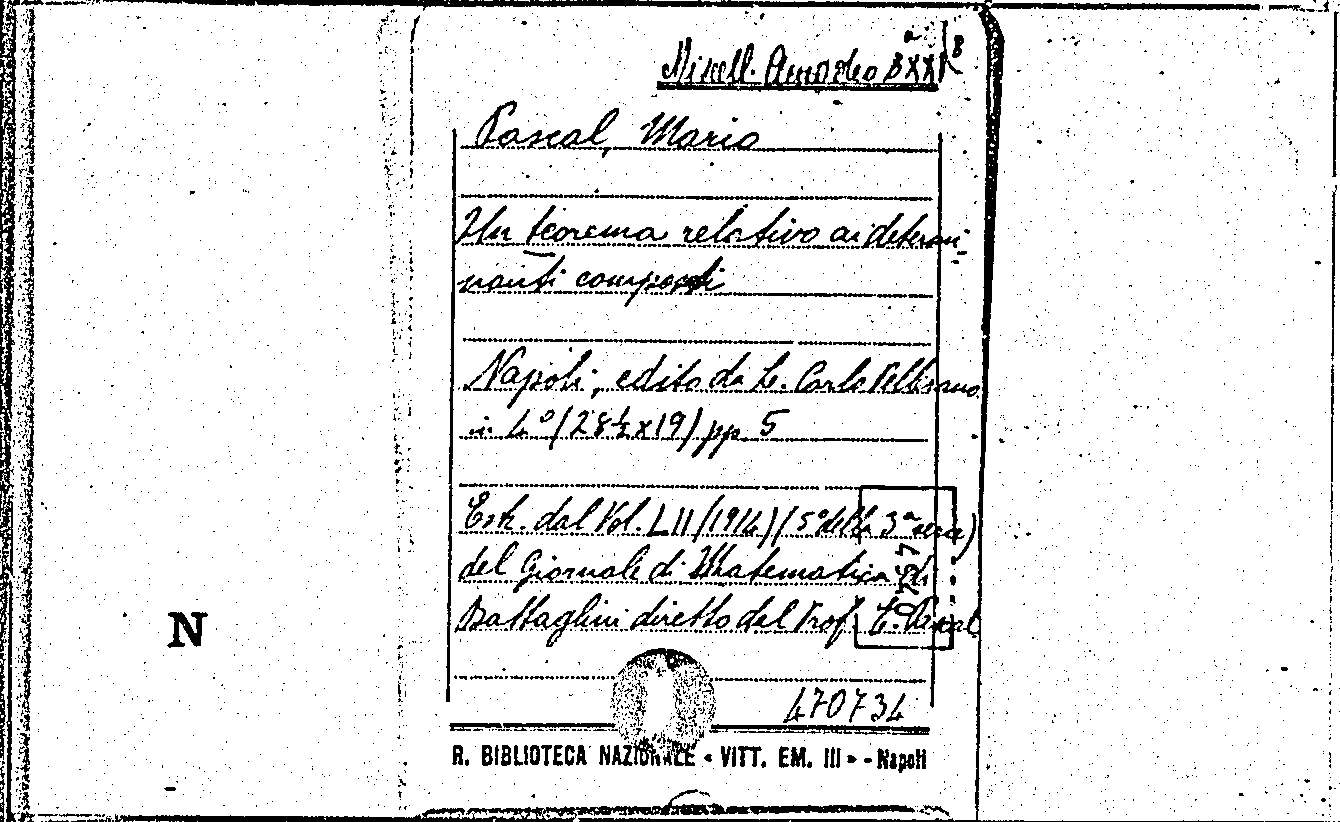 Miscell. Amodeo B XXI
B
Pascal, Mario
Un teorema relativo ai determi-
nanti composti
Napoli, edito da L. Carlo Pellerano
in 4º (28½ x 19) pp. 5
Estr. dal Vol. LII (1914) (5º della 3ª serie)
del Giornale di Matematica di
Battaglini diretto dal Prof. E. Pascal
470734
R. BIBLIOTECA NAZIONALE « VITT. EM. III » - Napoli
N